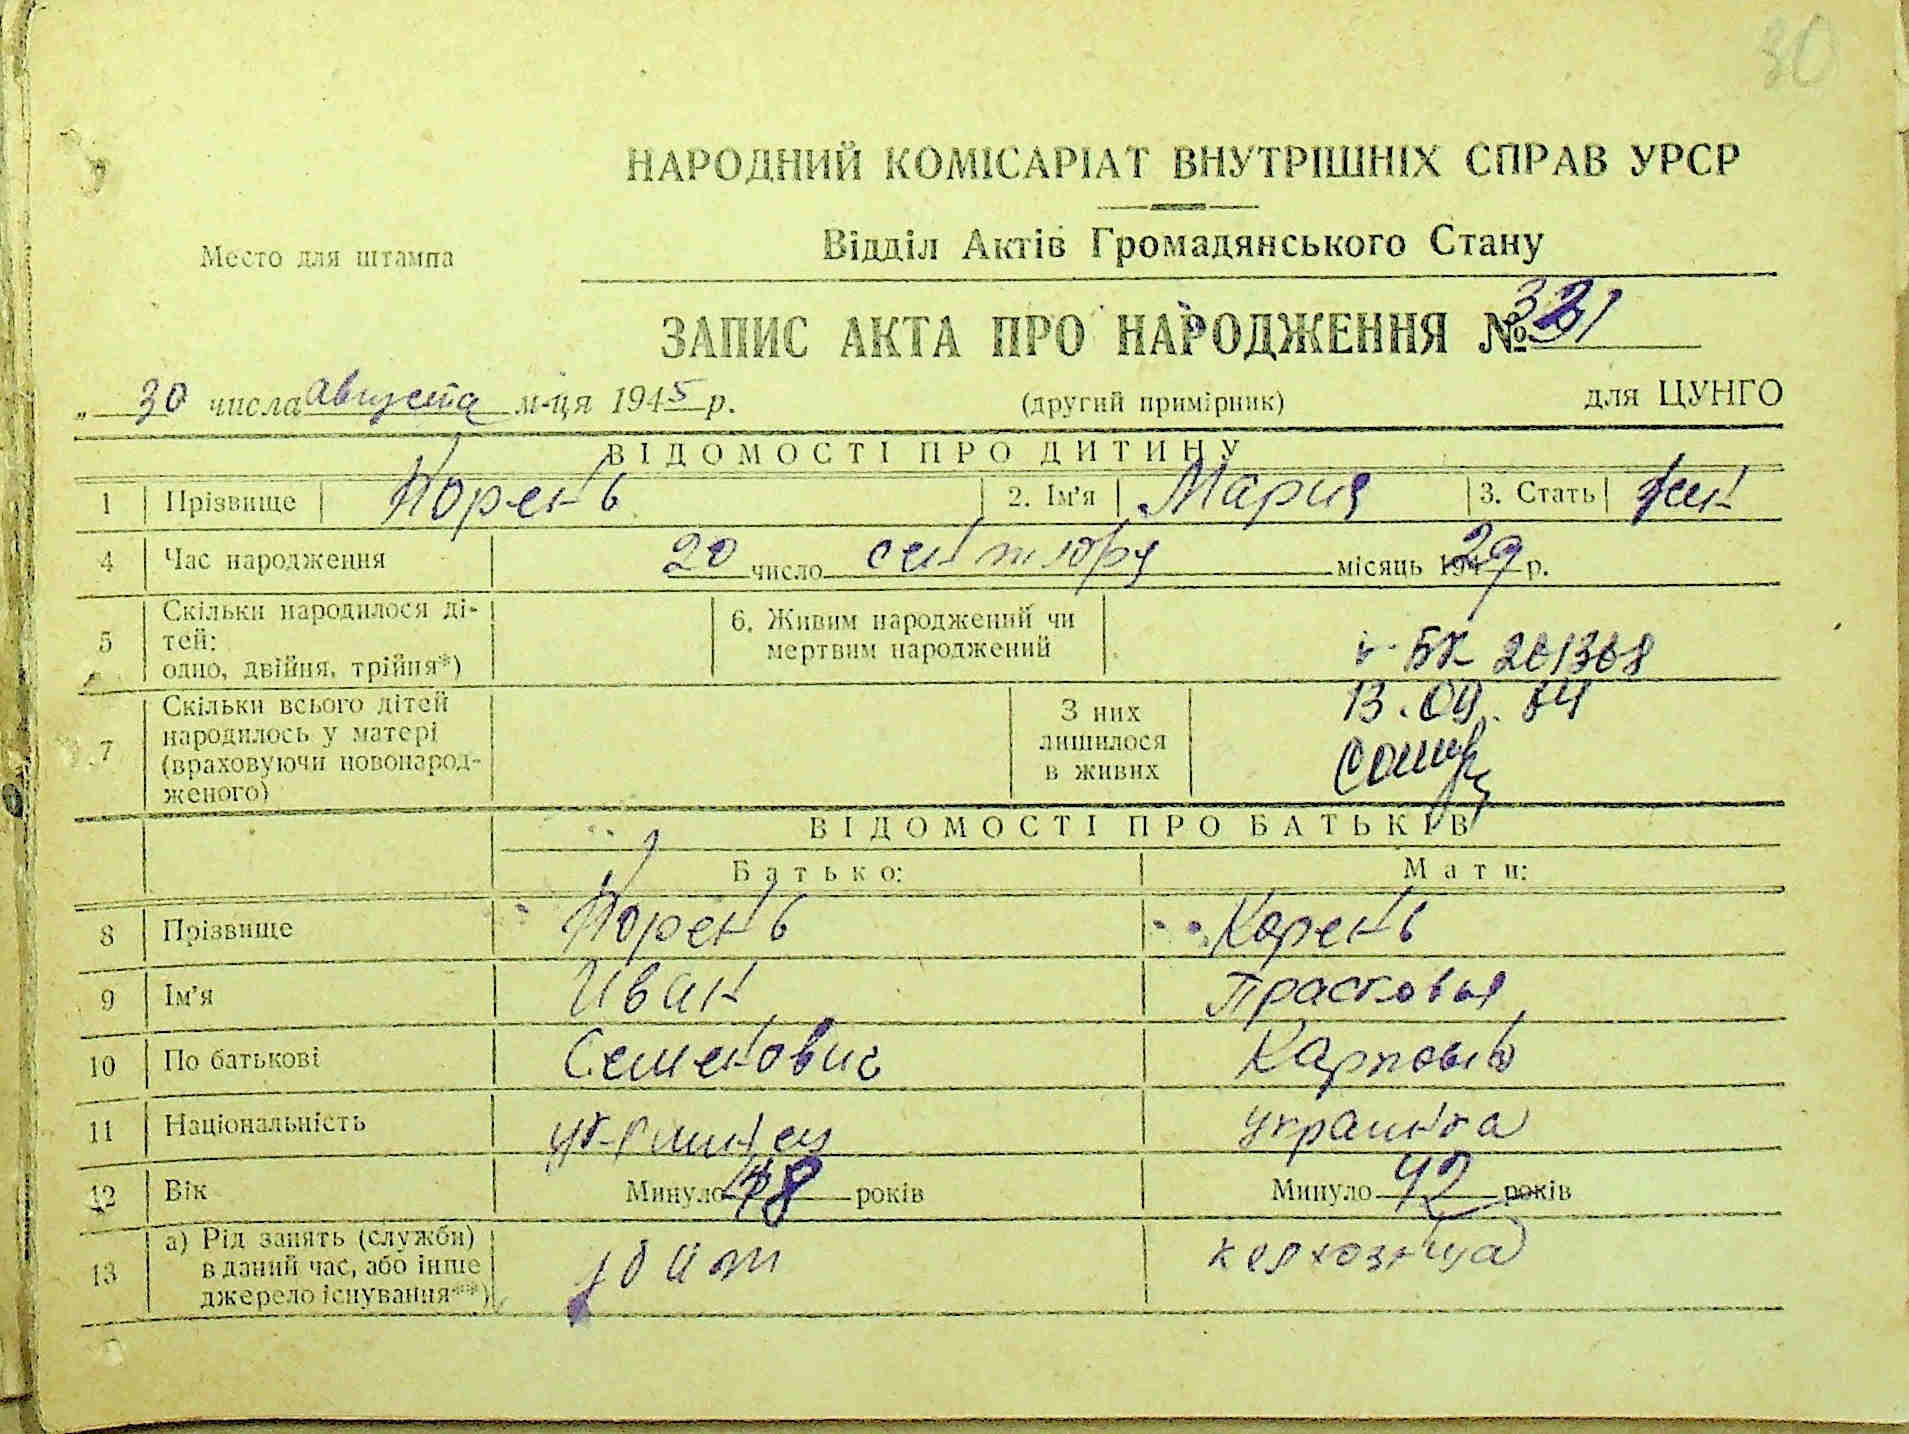 30
НАРОДНИЙ КОМІСАРІАТ ВНУТРІШНІХ СПРАВ УРСР
Место для штампа
Відділ Актів Громадянського Стану
ЗАПИС АКТА ПРО НАРОДЖЕННЯ № 321
„ 30 числа августа м-ця 1945 р. (другий примірник) для ЦУНГО
ВІДОМОСТІ ПРО ДИТИНУ
1 Прізвище Корень 2. Ім'я Мария 3. Стать жен
4 Час народження 20 число сентября місяць 1929 р.
5 Скільки народилося ді-
тей:
одно, двійня, трійня*)
6. Живим народжений чи
мертвим народжений
БК 261368
13.09.
7 Скільки всього дітей
народилось у матері
(враховуючи новонарод-
женого)
З них
лишилося
в живих
ВІДОМОСТІ ПРО БАТЬКІВ
Батько: Мати:
8 Прізвище Корень Корень
9 Ім'я Иван Прасковья
10 По батькові Семенович Карповна
11 Національність украинец украинка
12 Вік Минуло 48 років Минуло 42 років
13 а) Рід занять (служби)
в даний час, або інше
джерело існування**)
убит колхозница